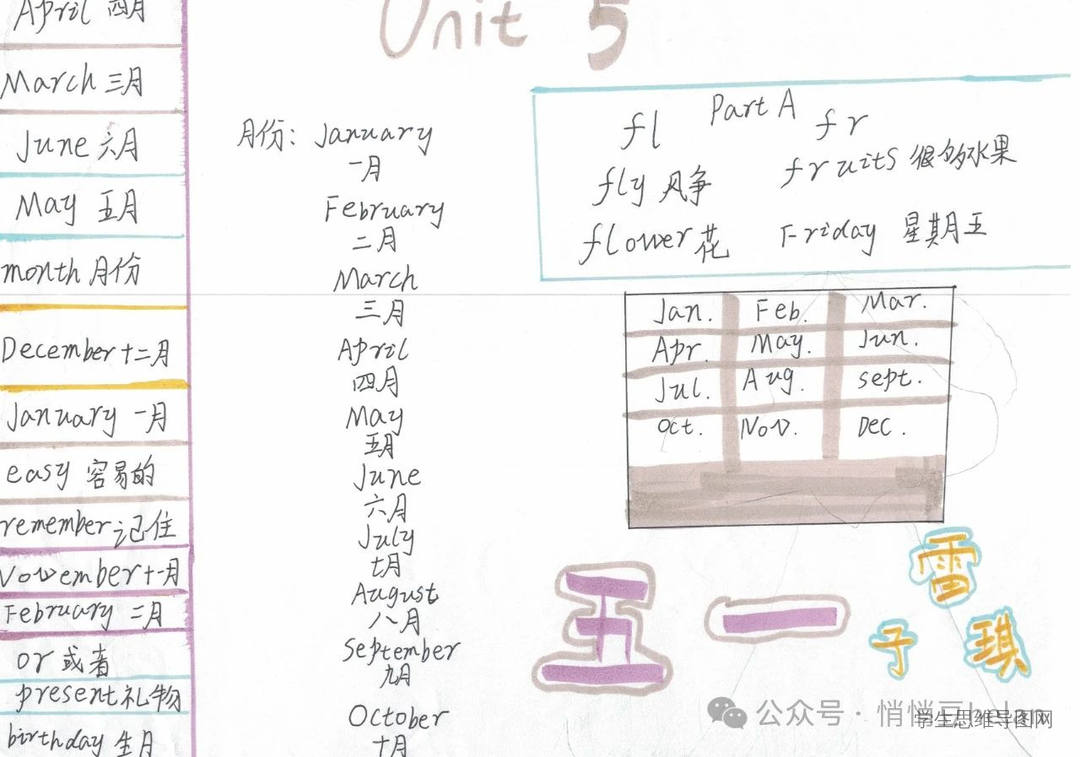 April 四月
March 三月
June 六月
May 五月
month 月份
December 十二月
January 一月
easy 容易的
remember 记住
November 十一月
February 二月
or 或者
present 礼物
birthday 生月
Unit 5
月份: January
一月
February
二月
March
三月
April
四月
May
五月
June
六月
July
七月
August
八月
September
九月
October
十月
Part A
fl fr
fly 风争 fruits 很多水果
flower 花 Friday 星期五
Jan. Feb. Mar.
Apr. May. Jun.
Jul. Aug. sept.
Oct. Nov. Dec.
五一
雪
子 琪
公众号 · 悄悄豆
学生思维导图网